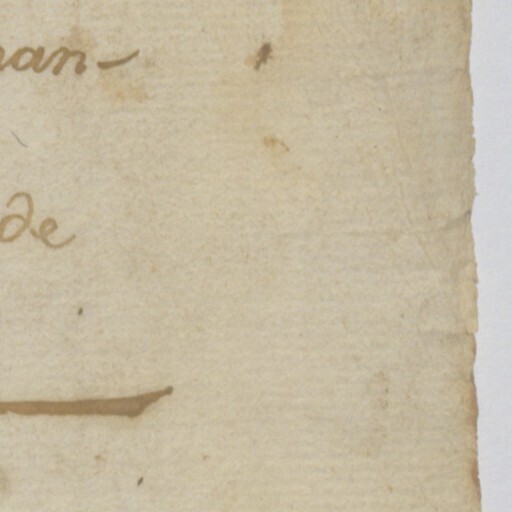 nan-
de